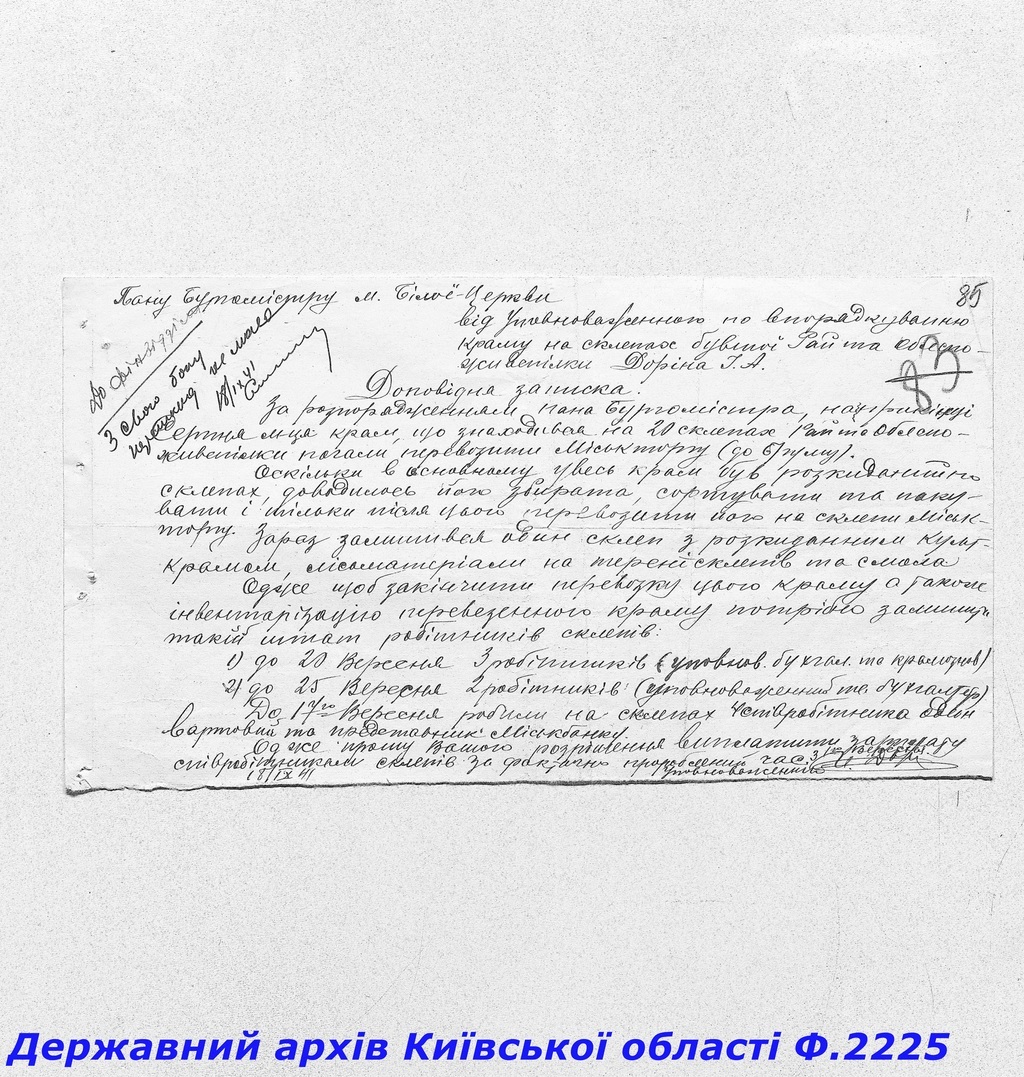 Пану Бургомістру м. Білої-Церкви
85
від Уповноваженного по впорядкуванню
краму на склепах бувшої Рай та Обляспо-
живспілки Доріна І. А.
83
До фінвідділу
З свого боку
не мало
18/IX 41
Доповідна записка.
За розпорядженням пана Бургомістра, наприкінці
Серпня м-ця крам, що знаходився на 20 склепах Рай та Обляспо-
живспілки почали перевозити Міськторгу (до В/пуму).
Оскільки в основному увесь крам був розкиданий по
склепах, доводилось його збирати, сортувати та паку-
вати і тільки після цього перевозити його на склепи Міськ-
торгу. Зараз залишився один склеп з розкиданним культ-
крамом, лісоматеріали на терені склепів та смола
Одже щоб закінчити перевозку цього краму а також
інвентарізацію перевезенного краму потрібно залишити
такий штат робітників склепів:
1) до 20 Вересня 3 робітників (уповнов. бухгал. та крамознав)
2) до 25 Вересня 2 робітників (уповноваженний та бухгалтер)
До 17го Вересня робили на склепах 4 співробітника один
вартовий та представник Міськбанку.
Одже прошу Вашого розрішення виплатити зарплату
співробітникам склепів за фактично пророблений час з 1го Вересня
18/IX 41 Уповноваженний
Державний архів Київської області Ф.2225